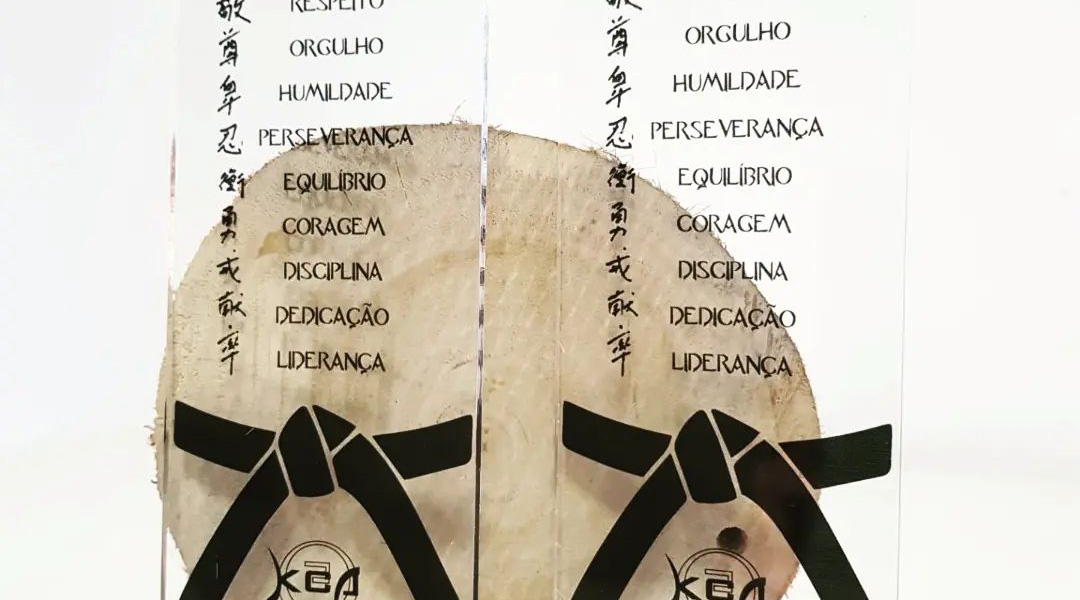 敬 RESPEITO
尊 ORGULHO
卑 HUMILDADE
忍 PERSEVERANÇA
衡 EQUILÍBRIO
勇 CORAGEM
戒 DISCIPLINA
献 DEDICAÇÃO
率 LIDERANÇA
敬
尊 ORGULHO
卑 HUMILDADE
忍 PERSEVERANÇA
衡 EQUILÍBRIO
勇 CORAGEM
戒 DISCIPLINA
献 DEDICAÇÃO
率 LIDERANÇA